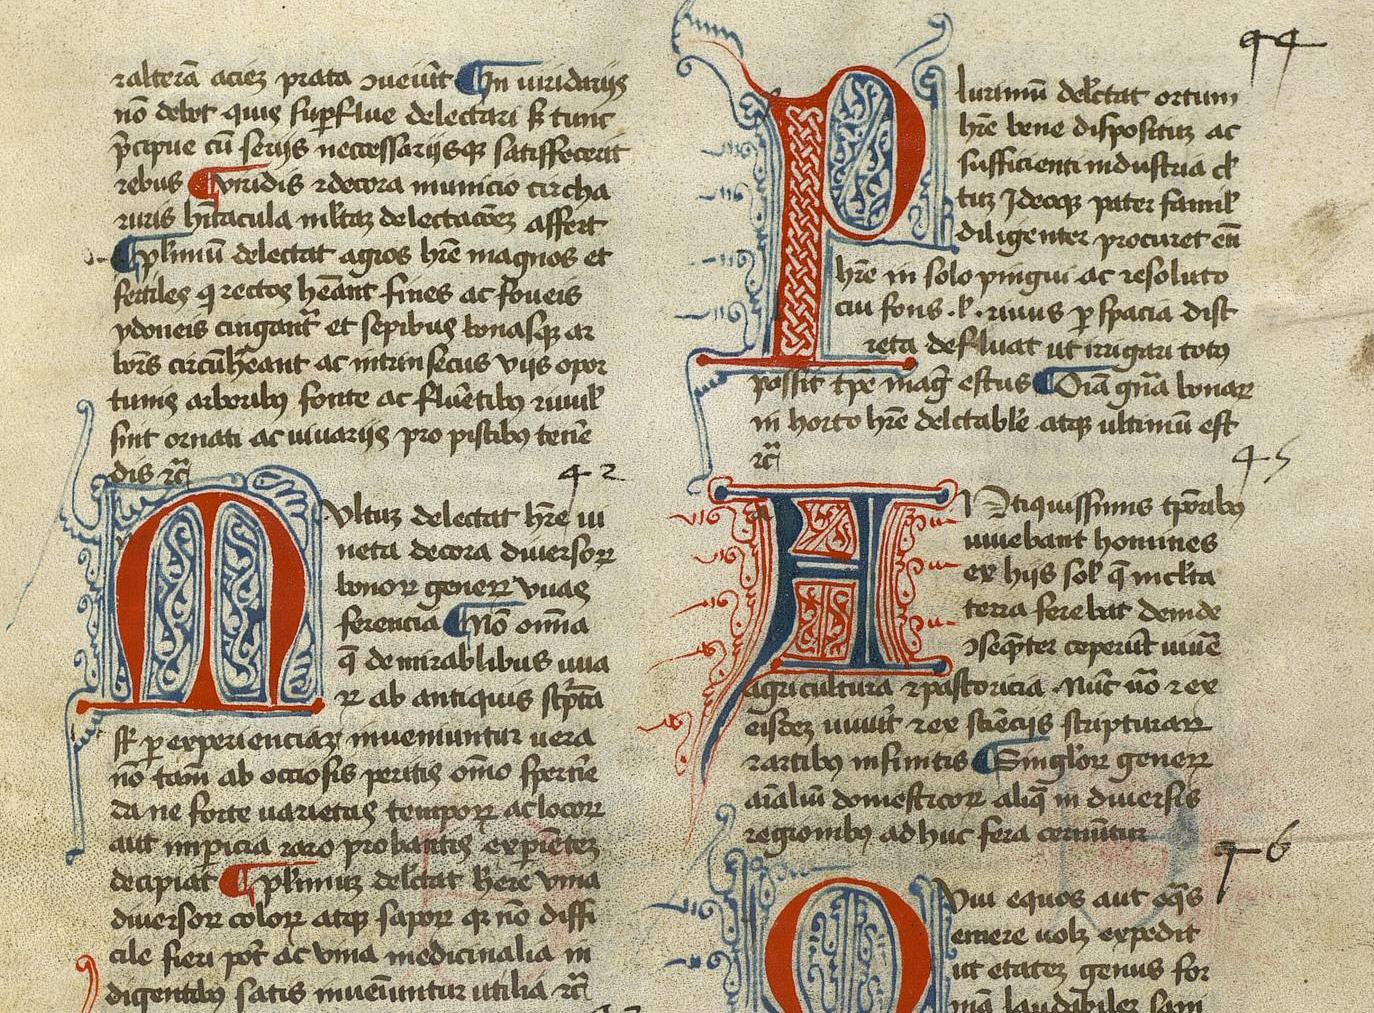 ⁊ alterā aciez prata ɔueiūt ¶ In uiridarijs
nō debet quis suꝑflue delectari sꝫ tunc
p̄cipue cū serijs neccessarijsqꝫ satiffecerit
rebus ¶ viridis ⁊ decora municio circha
ruris hītacula mltaz delectacōez affert
¶ plīmū delectat agros hr̄e magnos et
fertiles qͥ rectos hēant fines ac foueis
ydoneis cingant᷑ et sepibus bonasqꝫ ar
bor̄s circūhēant ac intrinsecus vijs opor
tunis arboribꝫ fonte ac fluētibꝫ riuul
sint ornati ac uiuarijs pro piscibꝫ tenē
dis ⁊c̄
42
Multuz delectat hr̄e ui
neta decora diuersoꝝ
bonoꝝ generꝝ vuas
ferencia ¶ Nō omīa
q̄ de mirabilibus uua
ꝝ ab antiquis sc̄pta
sꝫ ꝑ experienciaz inueniuntur uera
nō tam̄ ab occiosis peritis om̄o sperne
da ne forte uarietas tempoꝝ ac locoꝝ
aut imꝑicia raro probantis expiētez
decipiat ¶ plīmuz delc̄tat here vina
diuersoꝝ coloꝝ atqꝫ sapoꝝ qꝫ nō diffi
cile fieri pōt ac vina medicinalia in
digentibꝫ satis inueniuntur utilia ⁊c̄
44
Plurimū delc̄tat ortum
hr̄e bene dispositū ac
sufficienti industria cl
tuz Ideoqꝫ pater famil
diligenter procuret eū
hr̄e in solo pingui ac resoluto
cui fons .l. riuus ꝑ spacia dist
reta defluat ut irrigari totꝫ
possit tp̄e mag᷑ estus ¶ Oīa gn̄a bonaꝝ
in horto hr̄e delectable atqꝫ ultimū est
⁊c̄
45
Antiquissimis tp̄oribꝫ
uiuebant homines
ex hijs sol q̄ inclta
terra ferebat deinde
ɔseq̄nter ceperūt uiuē
agricultura ⁊ pastoricia Nūc uō ⁊ ex
eisdez uiuūt ⁊ ex sciēcijs scripturaꝝ
⁊ artibꝫ infinitis ¶ Singloꝝ generꝝ
aīaliū domesticoꝝ aliq̄ in diuersis
regionibꝫ ad huc fera cernūtur
46
Qui equos aut eq̄s
emere uolꝫ expedit
ut etatez genus for
mā laudabilez sani